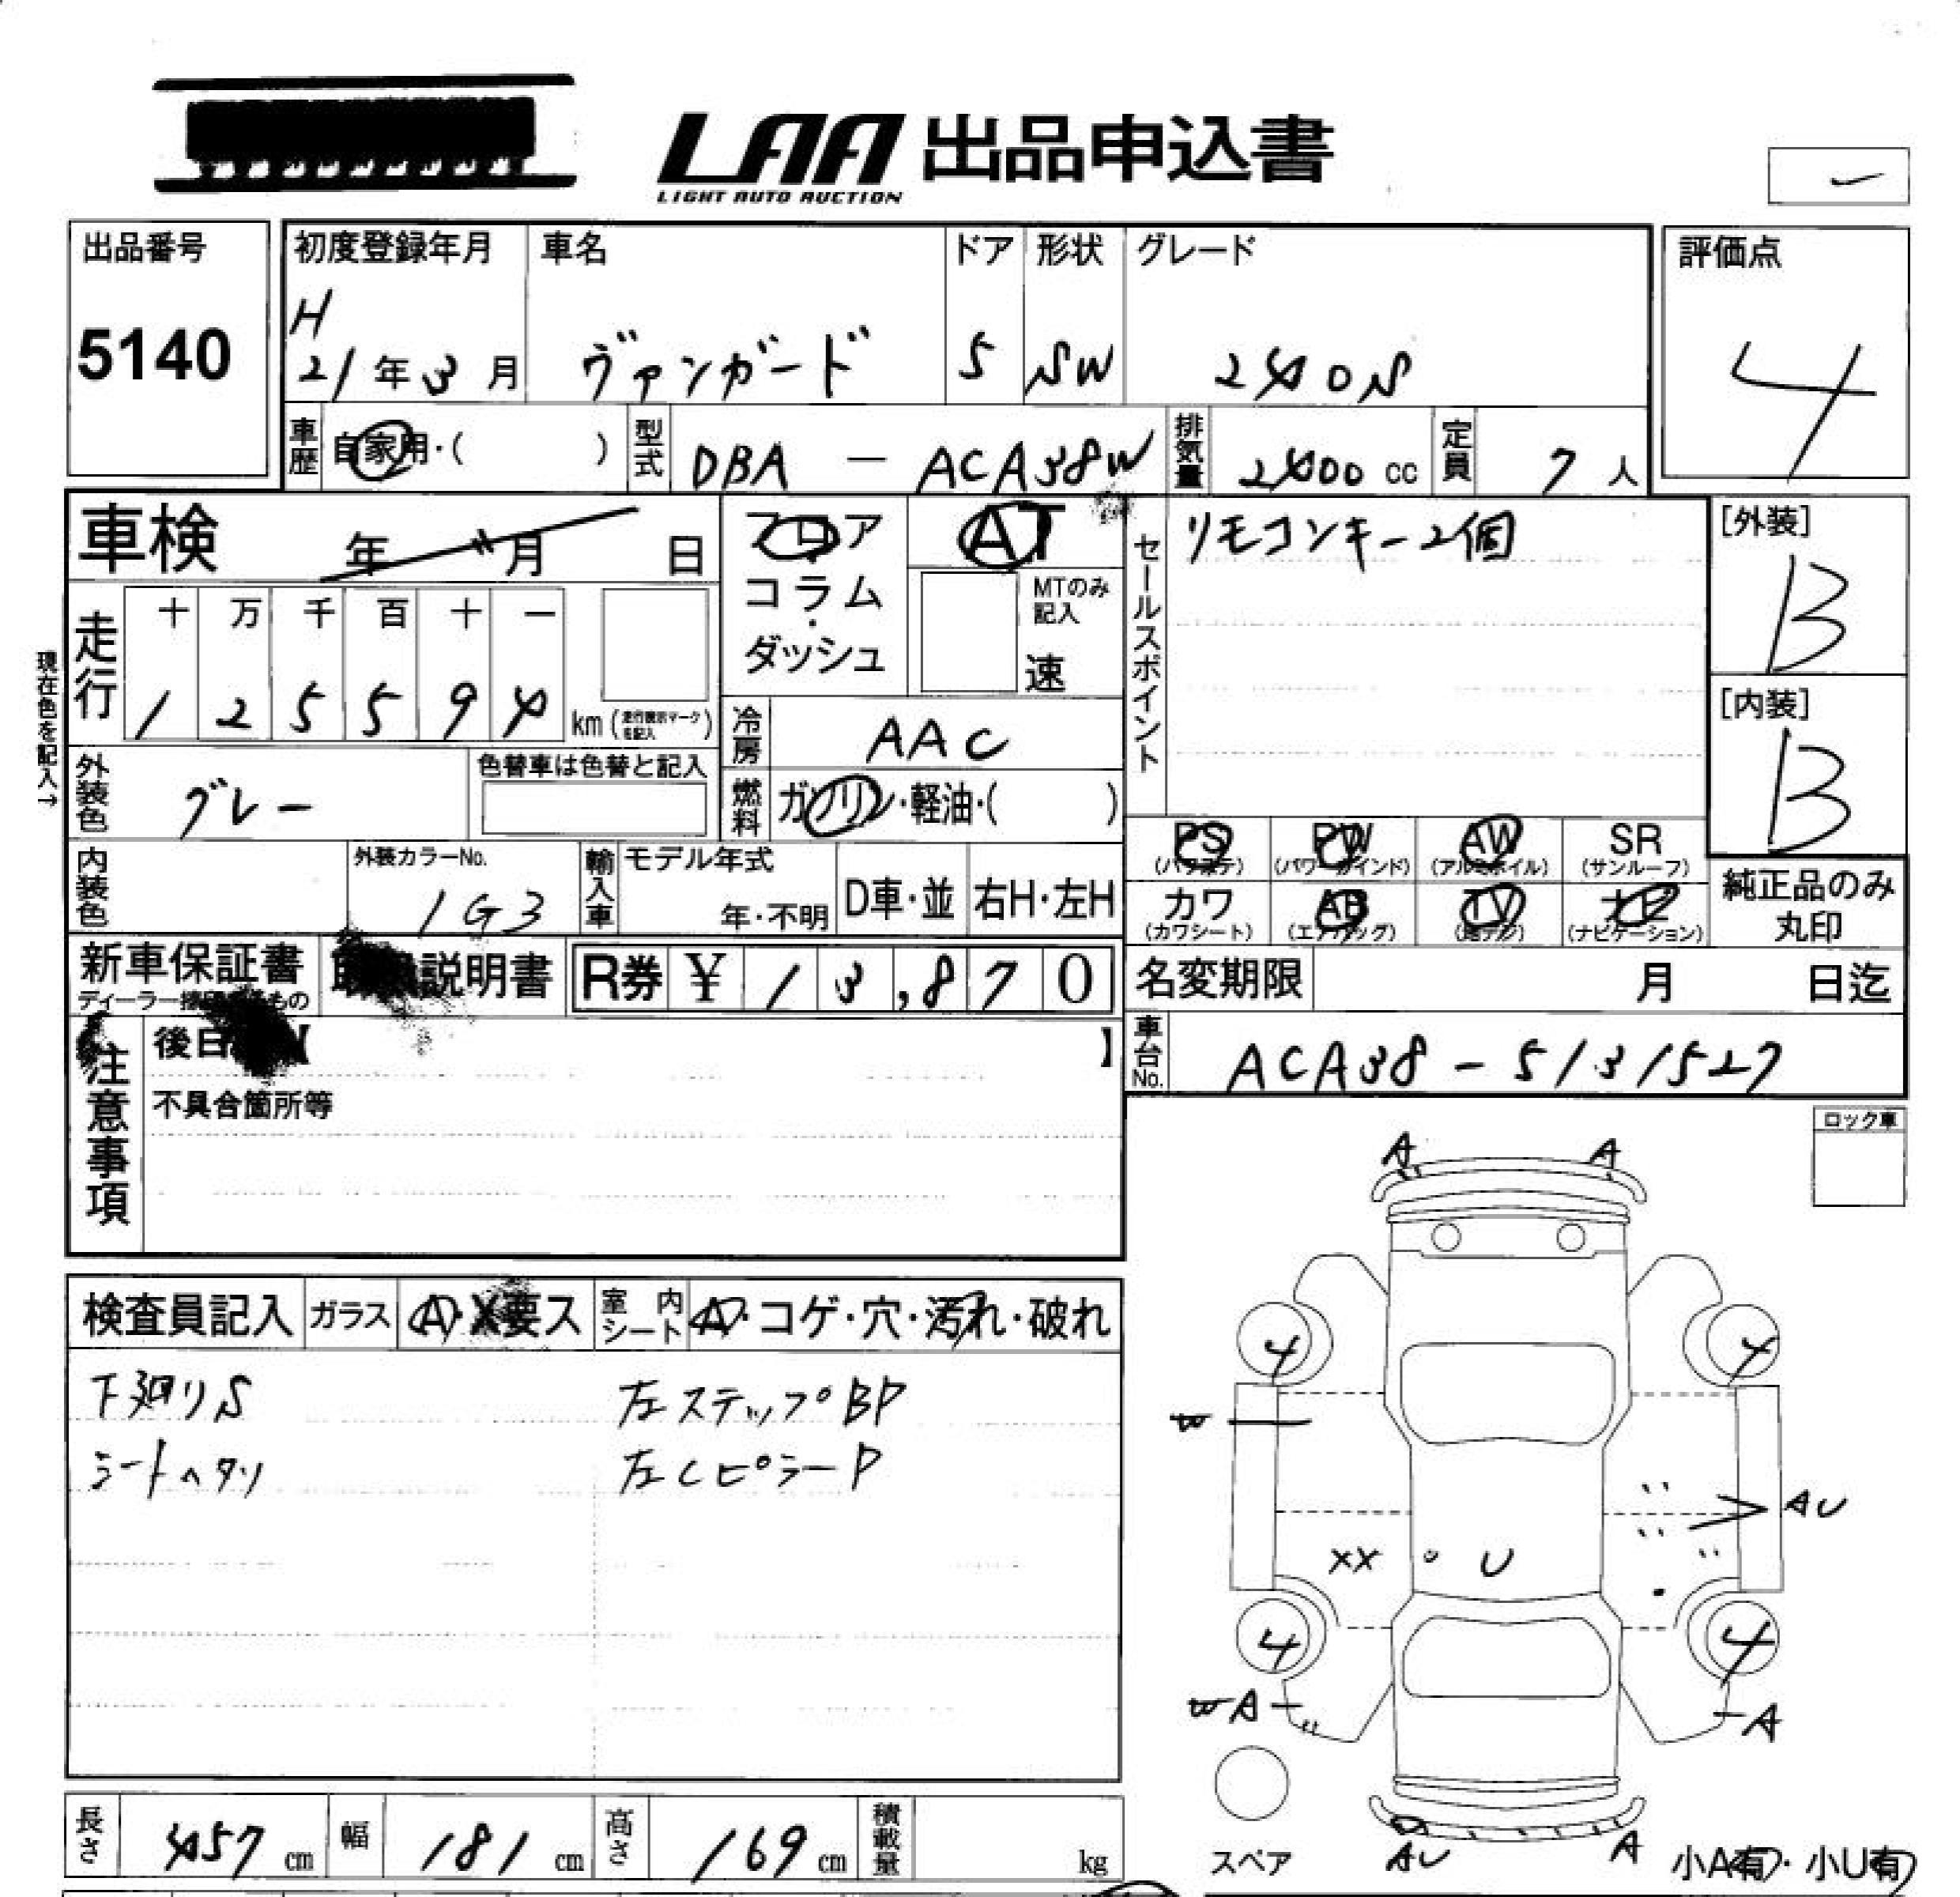 LAA 出品申込書
LIGHT AUTO AUCTION
出品番号
5140
初度登録年月
H
21年3月
車名
ヴァンガード
ドア
5
形状
SW
グレード
240S
評価点
4
車歴
自家用・( )
型式
DBA - ACA38W
排気量
2400 cc
定員
7人
車検 年 月 日
フロア
・
コラム
・
ダッシュ
AT
MTのみ
記入
速
セールスポイント
リモコンキー2個
[外装]
B
[内装]
B
現在色を記入→
走行
十 万 千 百 十 一
1 2 5 5 9 4
km
冷房
AAC
燃料
ガソリン・軽油・( )
外装色
グレー
色替車は色替と記入
内装色
外装カラーNo.
1G3
輸入車
モデル年式
年・不明
D車・並
右H・左H
PS
(パワステ)
PW
(パワーウインド)
AW
(アルミホイル)
SR
(サンルーフ)
カワ
(カワシート)
AB
(エアバッグ)
TV
(地デジ)
ナビ
(ナビゲーション)
純正品のみ
丸印
新車保証書
説明書
R券 ¥ 13,870
名変期限 月 日迄
車台No.
ACA38-5131527
注意事項
不具合箇所等
ロック車
検査員記入
ガラス
A・X要ス
室内シート
A・コゲ・穴・汚れ・破れ
下廻りS
左ステップBP
シートヘタリ
左CピラーP
A A
4 4
W
AU
XX U
4 4
WA
A
スペア
AU A
小A有・小U有
長さ
457 cm
幅
181 cm
高さ
169 cm
積載量
kg